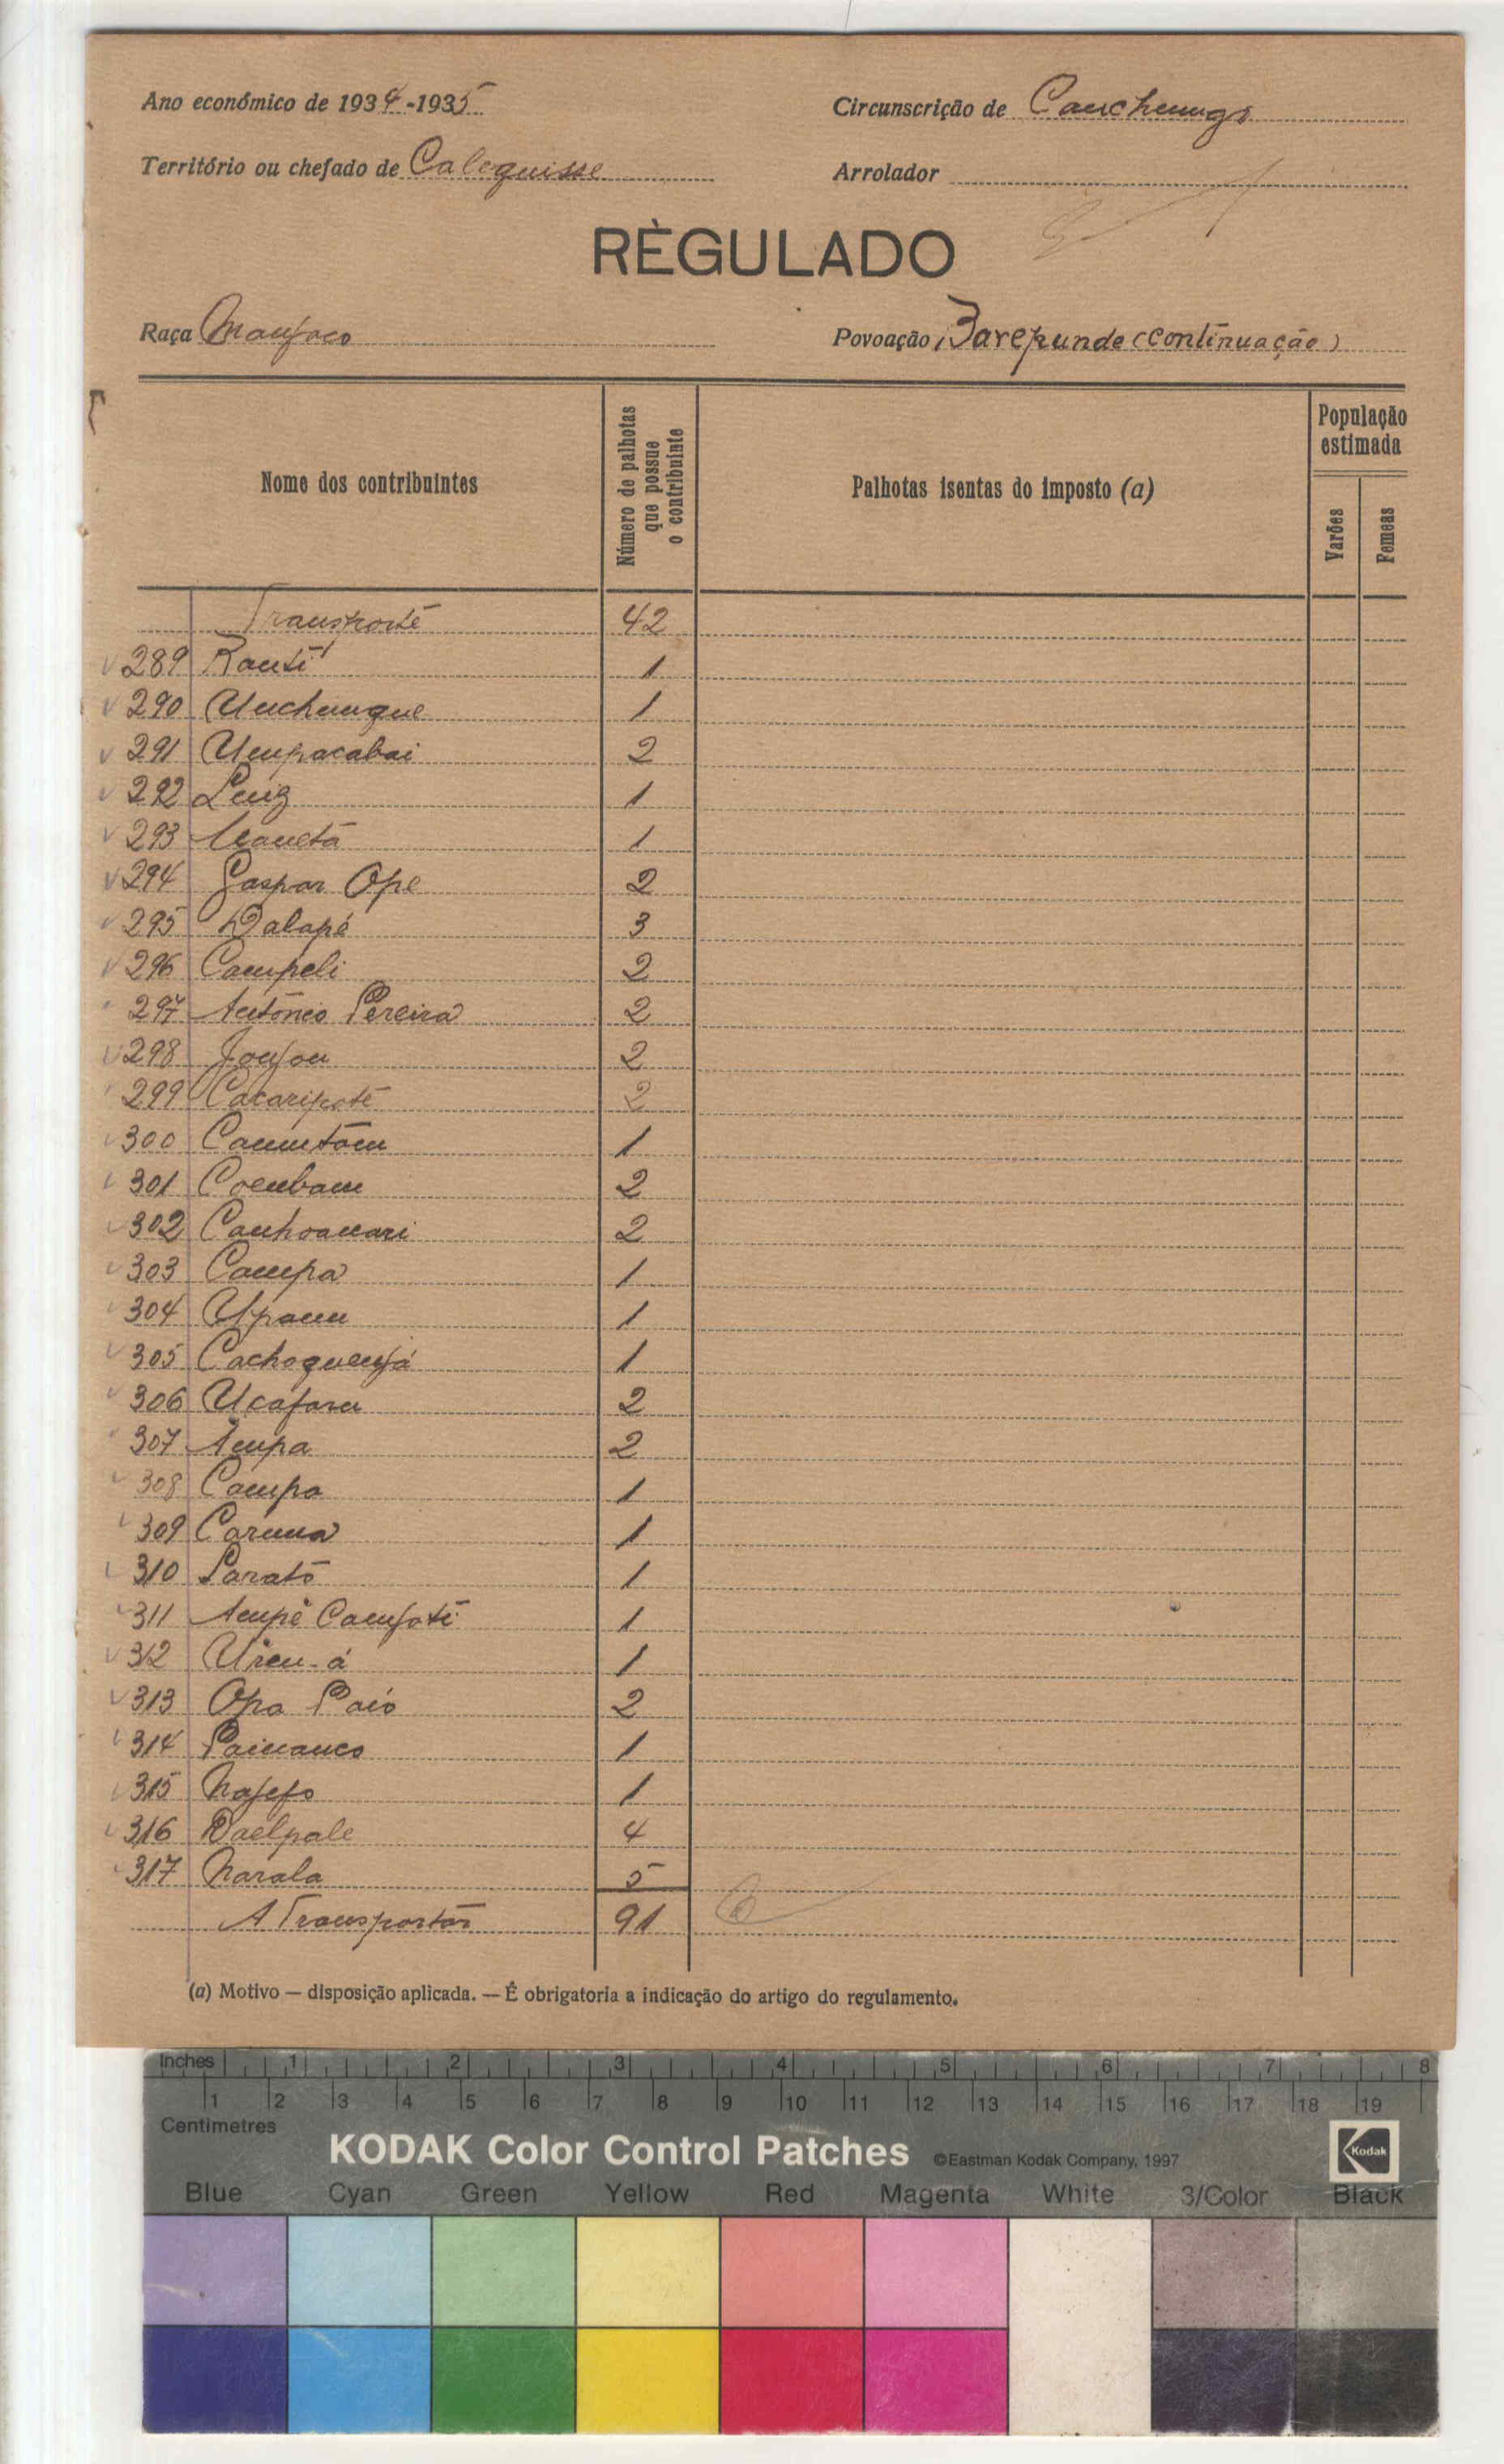 Ano económico de 1934-1935
Circunscrição de Canchungo
Território ou chefado de Calequisse
Arrolador
RÈGULADO
Raça Manjaco
Povoação Barepunde (continuação)
Nome dos contribuintes
Número de palhotas que possue o contribuinte
Palhotas isentas do imposto (a)
População estimada
Varões
Femeas
Transporte 42
289 Ranti 1
290 Unchungue 1
291 Umpacabai 2
292 Luiz 1
293 1
294 Gaspar Ope 2
295 Dalapé 3
296 Campeli 2
297 António Pereira 2
298 Jonjou 2
299 Cacaripoté 2
300 1
301 Coembam 2
302 2
303 Campa 1
304 Upam 1
305 1
306 2
307 Ampa 2
308 Campa 1
309 1
310 1
311 Ampé Camjoti 1
312 1
313 Opa Paió 2
314 1
315 Najefo 1
316 Daelpale 4
317 Narala 5
A Transportar 91
(a) Motivo — disposição aplicada. — É obrigatoria a indicação do artigo do regulamento.
Inches 1 2 3 4 5 6 7 8
1 2 3 4 5 6 7 8 9 10 11 12 13 14 15 16 17 18 19
Centimetres
KODAK Color Control Patches ©Eastman Kodak Company, 1997 Kodak
Blue Cyan Green Yellow Red Magenta White 3/Color Black